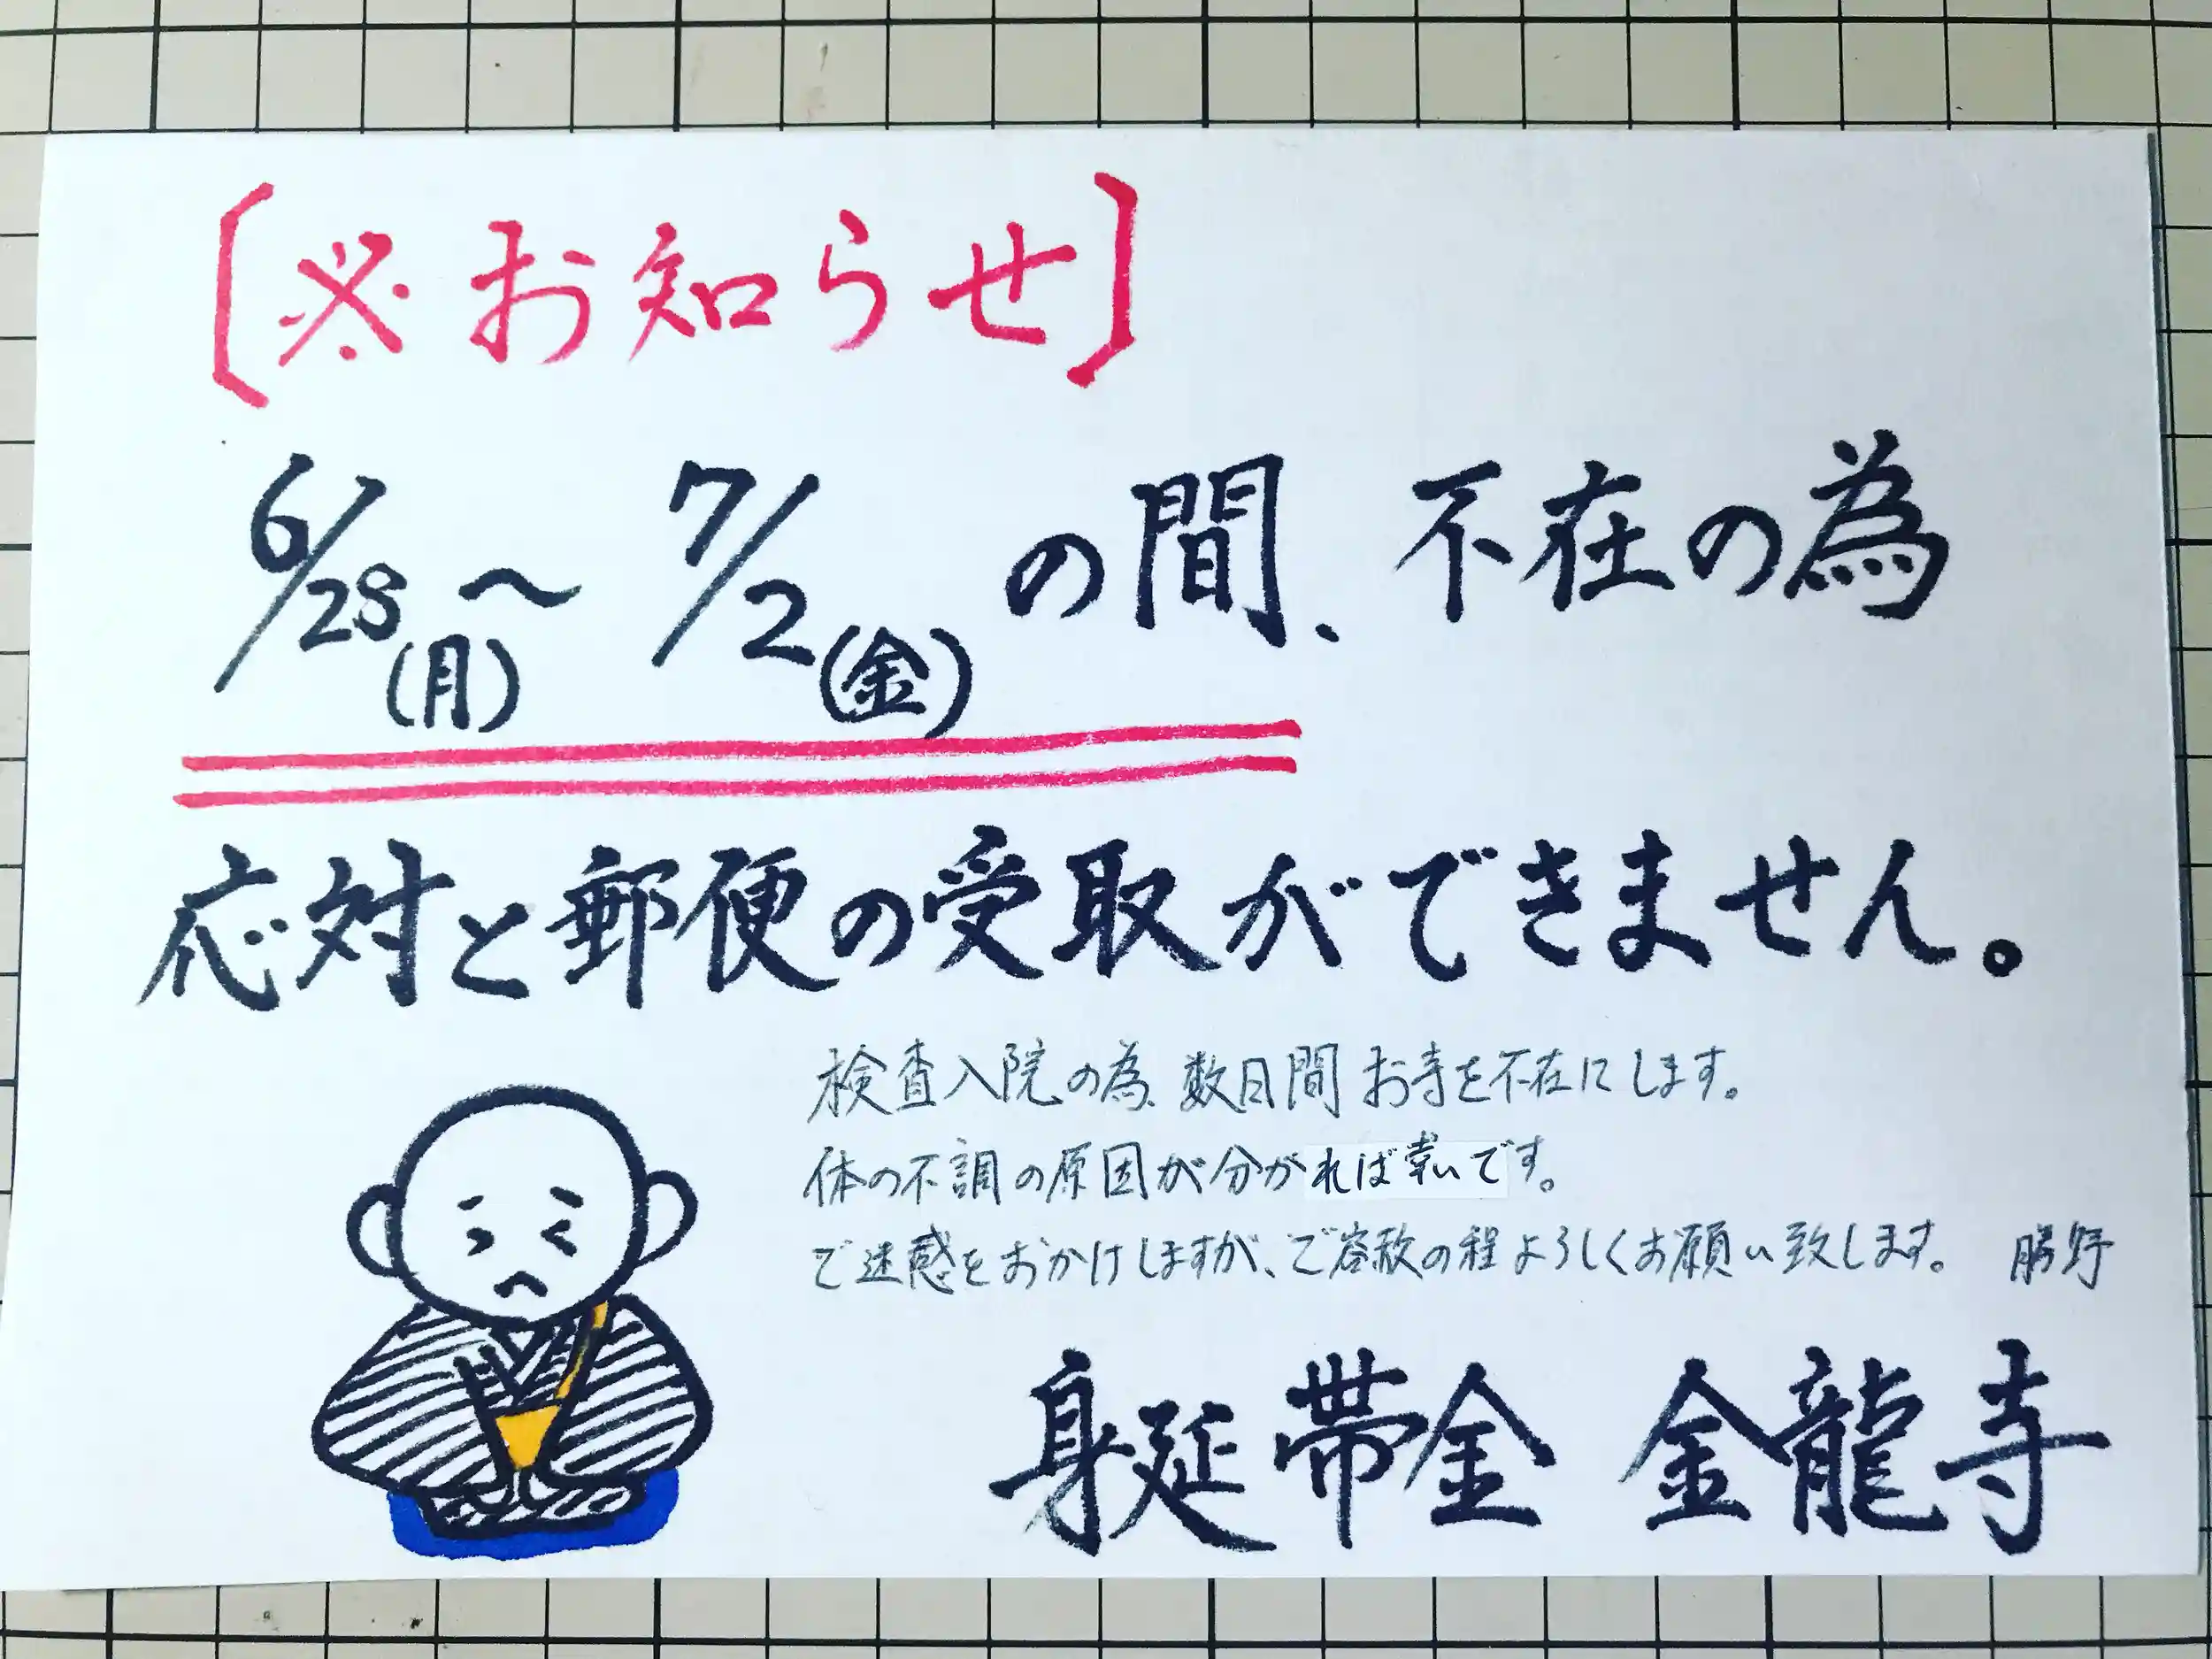 〔※お知らせ〕
6/28(月)〜7/2(金)の間、不在の為
応対と郵便の受取ができません。
検査入院の為、数日間お寺を不在にします。
体の不調の原因が分かれば幸いです。
ご迷惑をおかけしますが、ご容赦の程よろしくお願い致します。 勝野
身延帯金 金龍寺